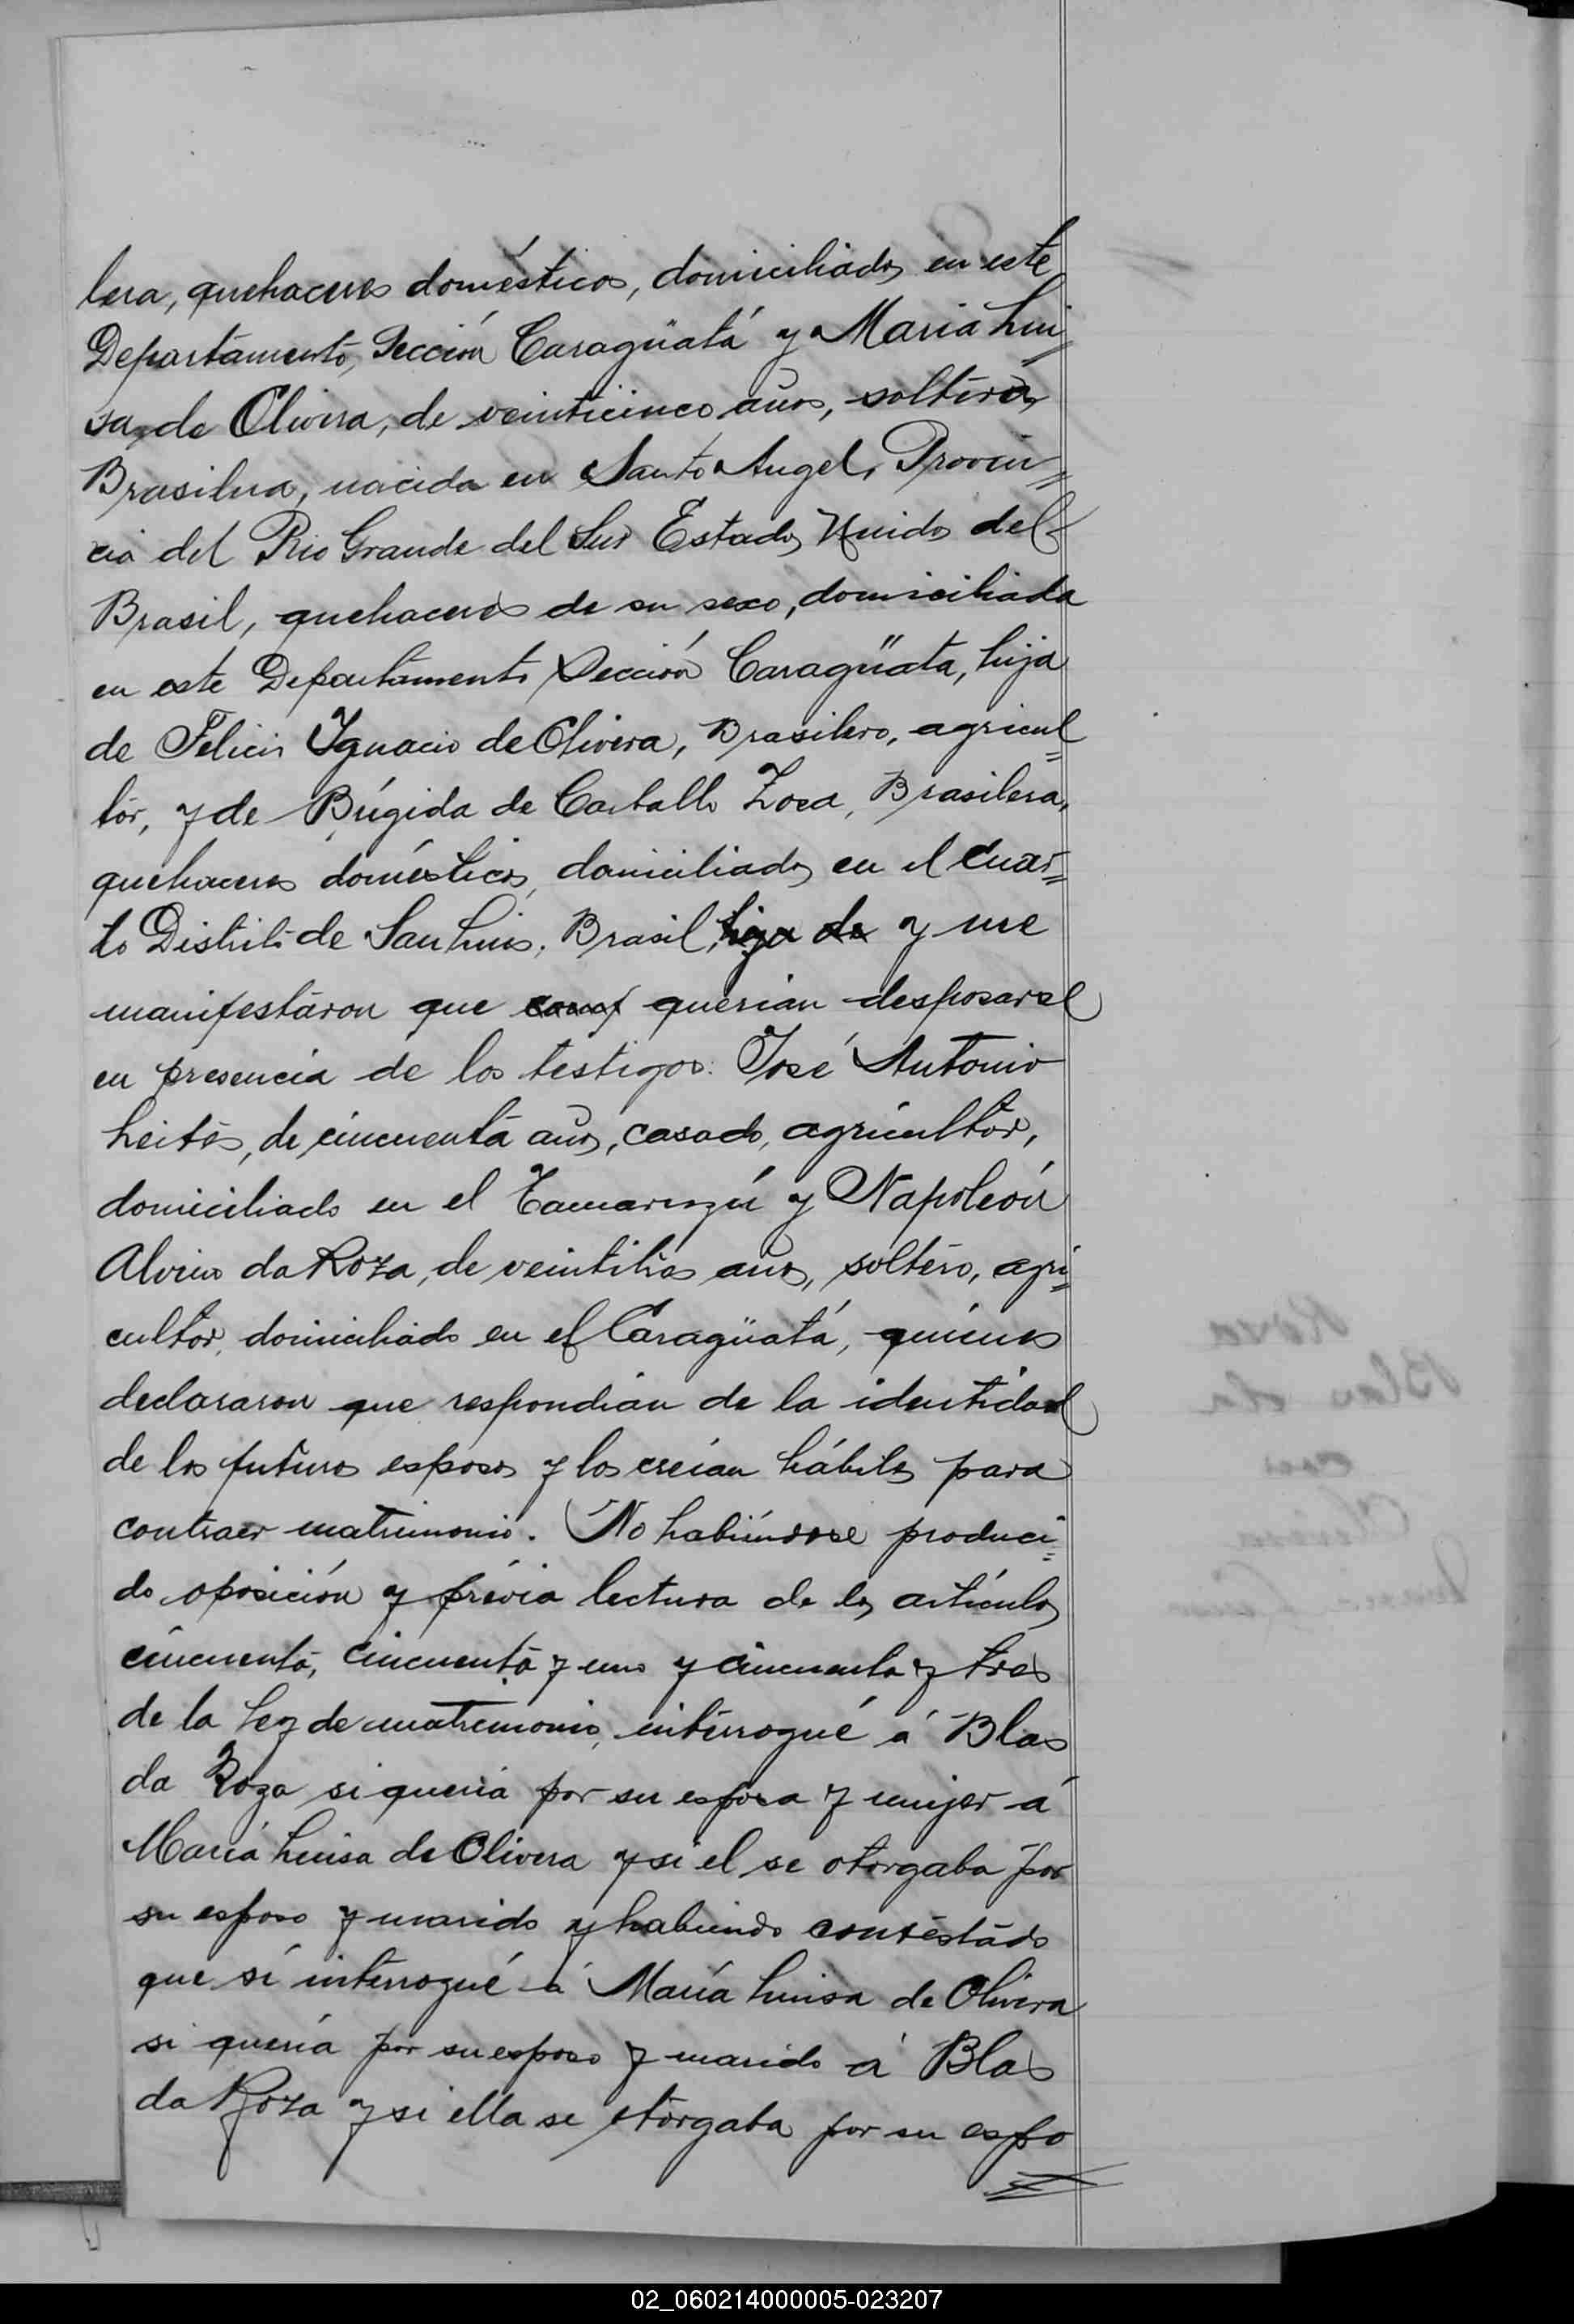 lera, quehaceres domésticos, domiciliados en este
Departamento, Sección Caragüatá y Maria Lui=
sa de Olivera, de veinticinco años, soltera,
Brasilera, nacida en Santo Angel, Provin=
cia del Rio Grande del Sur Estados Unidos del
Brasil, quehaceres de su sexo, domiciliada
en este Departamento Sección Caragüata, hija
de Ignacio de Olivera, Brasilero, agricul=
tor, y de Brígida de Brasilera,
quehaceres domésticos, domiciliados en el cuar=
to Distrito de San Luis, Brasil, hija de y me
manifestaron que querian desposarse
en presencia de los testigos: José Antonio
Leites, de cincuenta años, casado, agricultor,
domiciliado en el y Napoleón
da Roza, de años, soltero, agri=
cultor, domiciliado en el Caragüatá, quiénes
declararon que respondian de la identidad
de los futuros esposos y los creían hábiles para
contraer matrimonio. No habiéndose produci=
do oposición y prévia lectura de los artículos
cincuenta, cincuenta y uno y cincuenta y tres
de la Ley de matrimonio, interrogué á Blas
da Roza si queria por su esposa y mujer á
María Luisa de Olivera y si el se otorgaba por
su esposo y marido y habiendo contestado
que sí interrogué á María Luisa de Olivera
si quería por su esposo y marido á Blas
da Roza y si ella se otorgaba por su espo
02_060214000005-023207